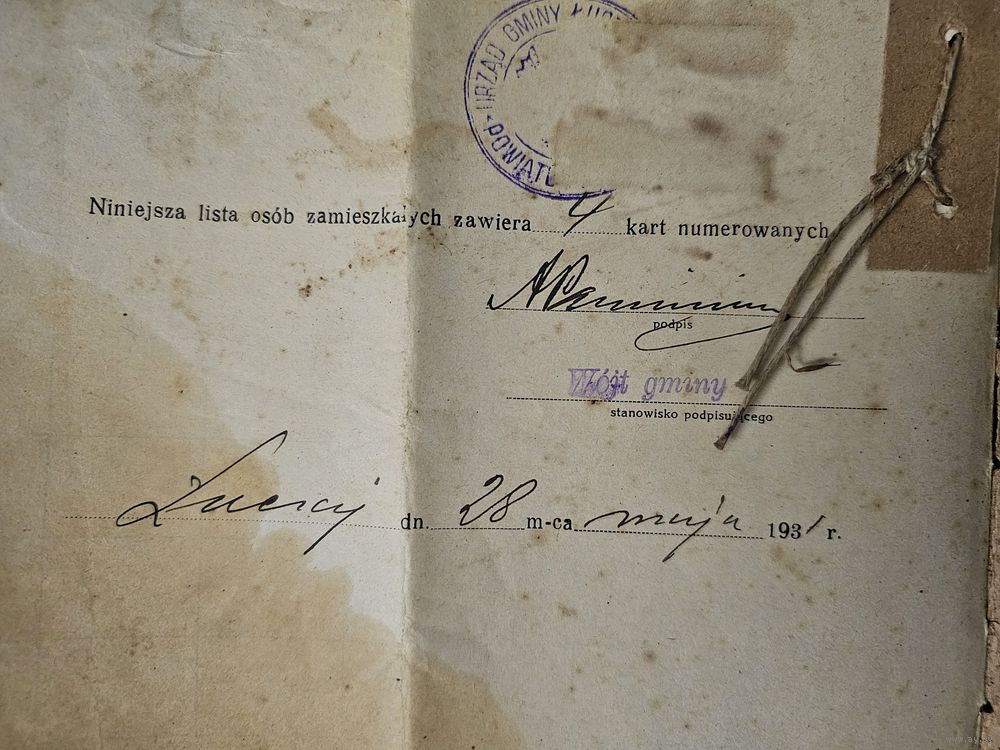 URZĄD GMINY
POWIATU
Niniejsza lista osób zamieszkałych zawiera 4 kart numerowanych
podpis
Wójt gminy
stanowisko podpisującego
dn. 28 m-ca maja 1931 r.